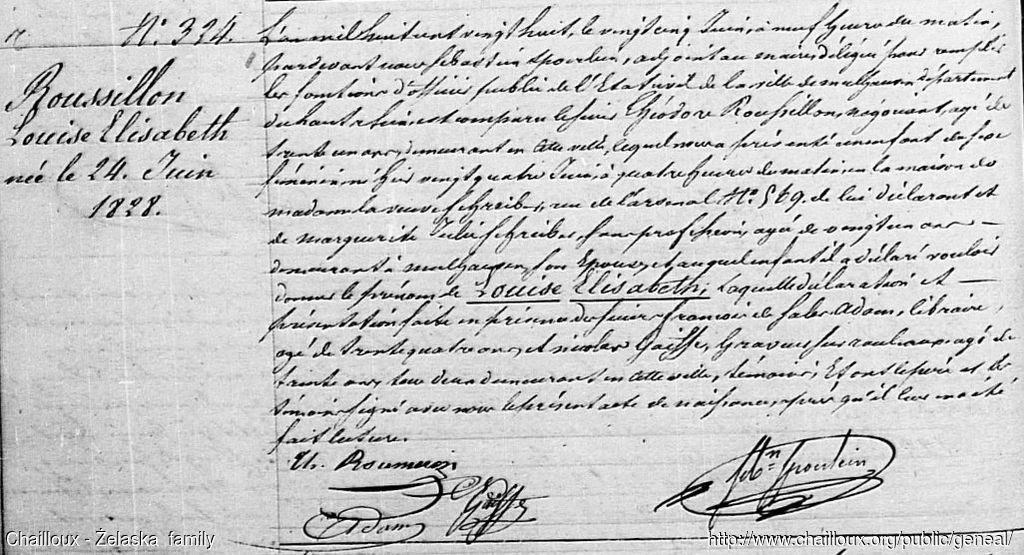 N.° 324.
Roussillon
Louise Elisabeth
née le 24. Juin
1828.
L'an mil huit cent vingt huit, le vingt cinq Juin, à neuf heures du matin,
pardevant nous Sébastien Spoerlein, adjoint au maire, délégué pour remplir
les fonctions d'officier public de l'Etat civil de la ville de mulhausen, département
du haut rhin, est comparu le sieur Théodore Roussillon, négociant, agé de
trente un ans, demeurant en cette ville, lequel nous a présenté un enfant du sexe
féminin, né hier vingt quatre Juin, à quatre heures du matin, en la maison de
madame la veuve Schreiber, rue de l'arsenal N.° 569. de lui déclarant et
de marguerite Julie Schreiber, sans profession, agée de vingt un ans,
demeurant à mulhausen, son Epouse, et auquel enfant il a déclaré vouloir
donner le prénom de Louise Elisabeth; Laquelle déclaration et
présentation faite en présence des sieurs françois de Sales Adam, libraire,
agé de trente quatre ans, et nicolas Gaiffe, Graveur sur rouleaux, agé de
trente ans, tous deux demeurant en cette ville, témoins; Et ont le père et les
témoins signé avec nous le présent acte de naissance, après qu'il leur en a été
fait lecture.
Th. Roussillon
Adam
Gaiffe
Seb.n Spoerlein
Chailloux - Żelaska family
http://www.chailloux.org/public/geneal/